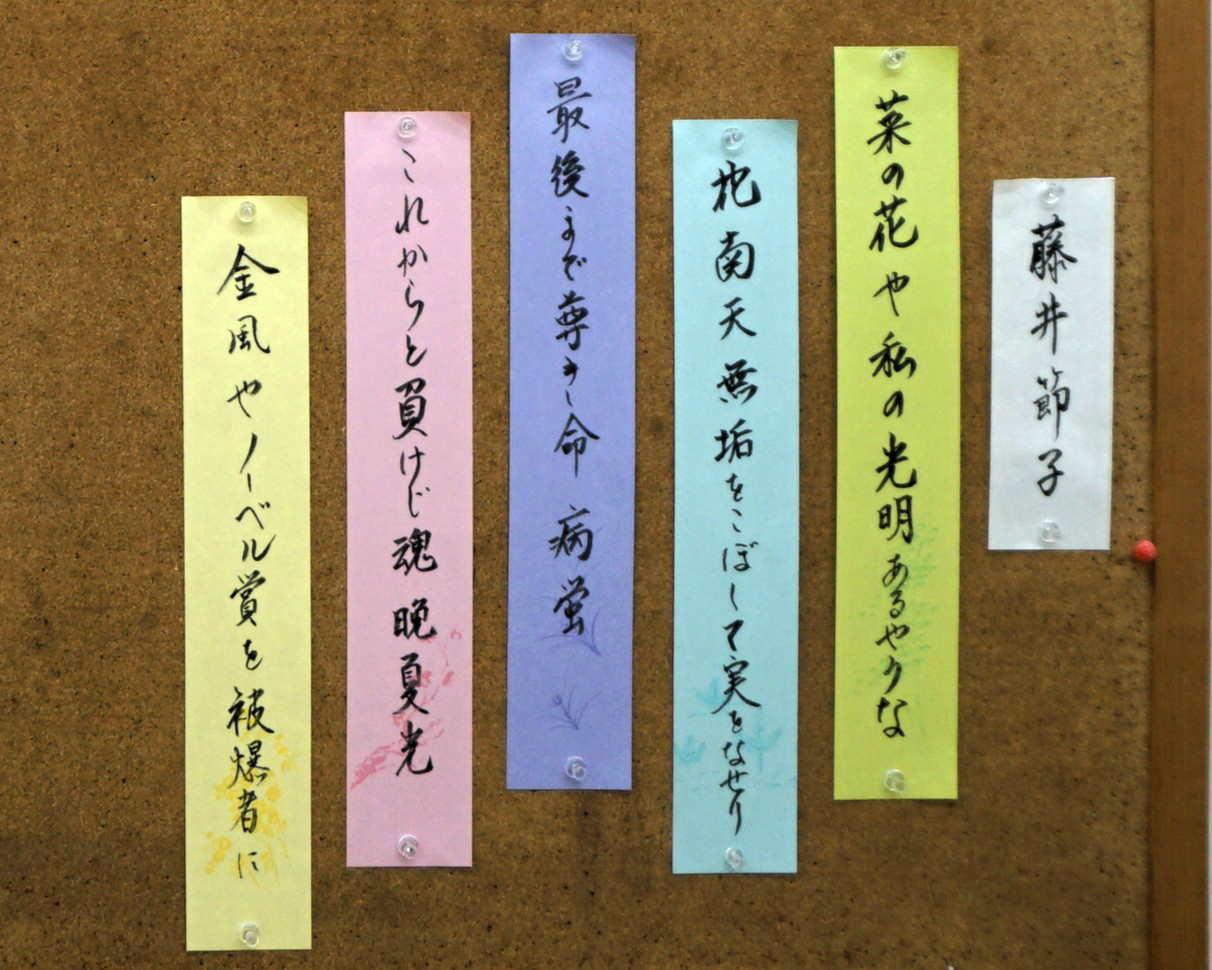 藤井節子
菜の花や私の光明あるやうな
花南天無垢をこぼして実をなせり
最後まで尊き命病蛍
これからと負けじ魂晩夏光
金風やノーベル賞を被爆者に